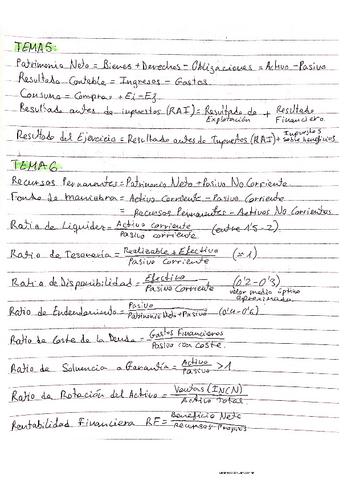 TEMA 5:
Patrimonio Neto = Bienes + Derechos - Obligaciones = Activo - Pasivo
Resultado Contable = Ingresos - Gastos.
Consumo = Compras + Ei - Ef.
Resultado antes de impuestos (RAI) = Resultado de Explotación + Resultado Financiero.
Resultado del Ejercicio = Resultado antes de Impuestos (RAI) + Impuestos sobre beneficios.
TEMA 6
Recursos Permanentes = Patrimonio Neto + Pasivo No Corriente
Fondo de Maniobra = Activo Corriente - Pasivo Corriente
= Recursos Permanentes - Activos No Corrientes
Ratio de Liquidez = Activo corriente / Pasivo corriente (entre 1'5 - 2)
Ratio de Tesorería = Realizable + Efectivo / Pasivo Corriente (> 1)
Ratio de Disponibilidad = Efectivo / Pasivo Corriente (0'2 - 0'3) valor medio óptimo aproximado
Ratio de Endeudamiento = Pasivo / Patrimonio Neto + Pasivo (0'4 - 0'6)
Ratio de Coste de la Deuda = Gastos Financieros / Pasivo con coste.
Ratio de Solvencia o Garantía = Activo / Pasivo > 1
Ratio de Rotación del Activo = Ventas (INCN) / Activo Total
Rentabilidad Financiera RF = Beneficio Neto / Recursos Propios